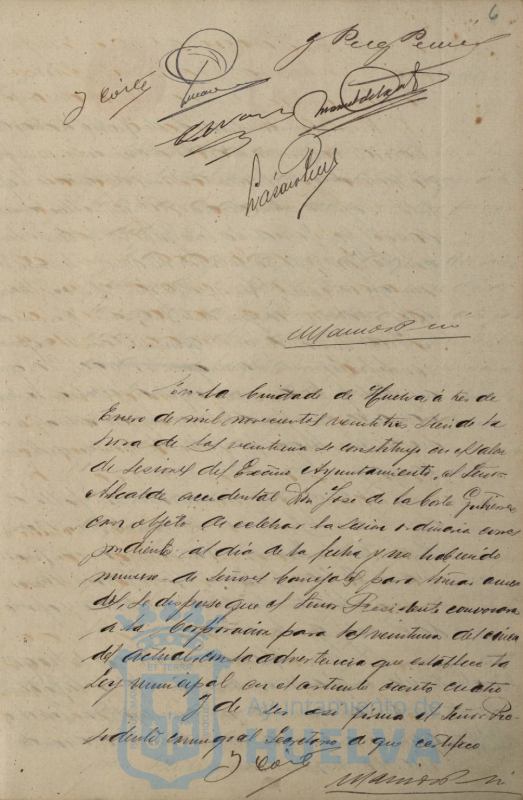 6
J Corte
En la Ciudad de Huelva á tres de
Enero de mil novecientos veintitres siendo la
hora de las veintiuna se constituyó en el Salon
de sesiones del Excmo Ayuntamiento, el Señor
Alcalde accidental Don José de la Corte Gutierrez
con objeto de celebrar la sesión ordinaria corres
pondiente al día de la fecha y no habiendo
numero de señores Concejales para tomar acuer
dos, se dispuso que el Señor Presidente convocara
a la Corporación para las veintiuna del cinco
del actual, con la advertencia que establece la
Ley municipal en el articulo ciento cuatro
Y de ser así firma el Señor Pre-
sidente conmigo el Secretario de que certifico
J Corte
Ayuntamiento de
HUELVA